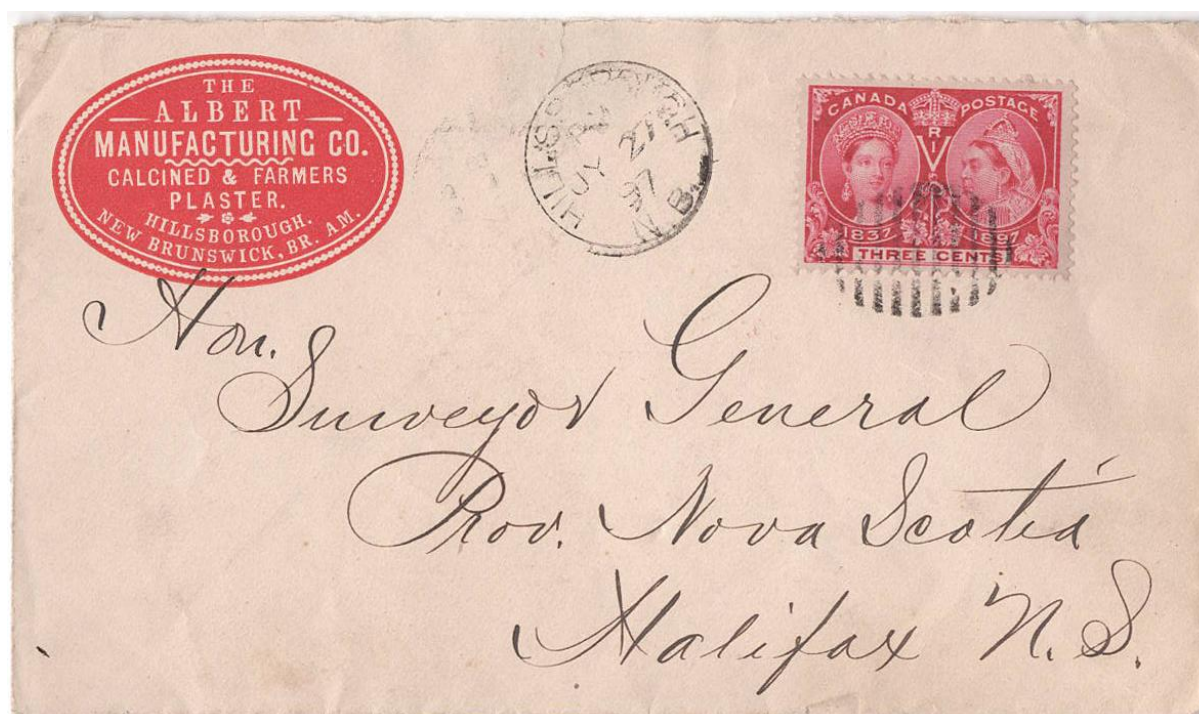 THE
ALBERT
MANUFACTURING CO.
CALCINED & FARMERS
PLASTER.
HILLSBOROUGH.
NEW BRUNSWICK, BR. AM.
HILLSBOROUGH
JY 27
97
N.B.
CANADA POSTAGE
V R I
1837 1897
THREE CENTS
Hon.
Surveyor General
Prov. Nova Scotia
Halifax N.S.